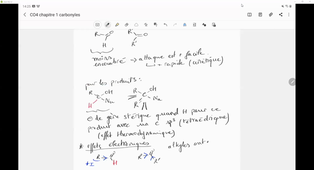 CO4 chapitre 1 carbonyles
R O R O
H R'
moins encombré → attaque est + facile
↳ + rapide (cinétique)
pour les produits :
R OH R OH
H Nu R' Nu
⊖ de gêne stérique quand H pour ce
produit avec un C sp³ (tétraédrique)
(effet thermodynamique)
* effets électroniques alkyles sont
+I R H R R'